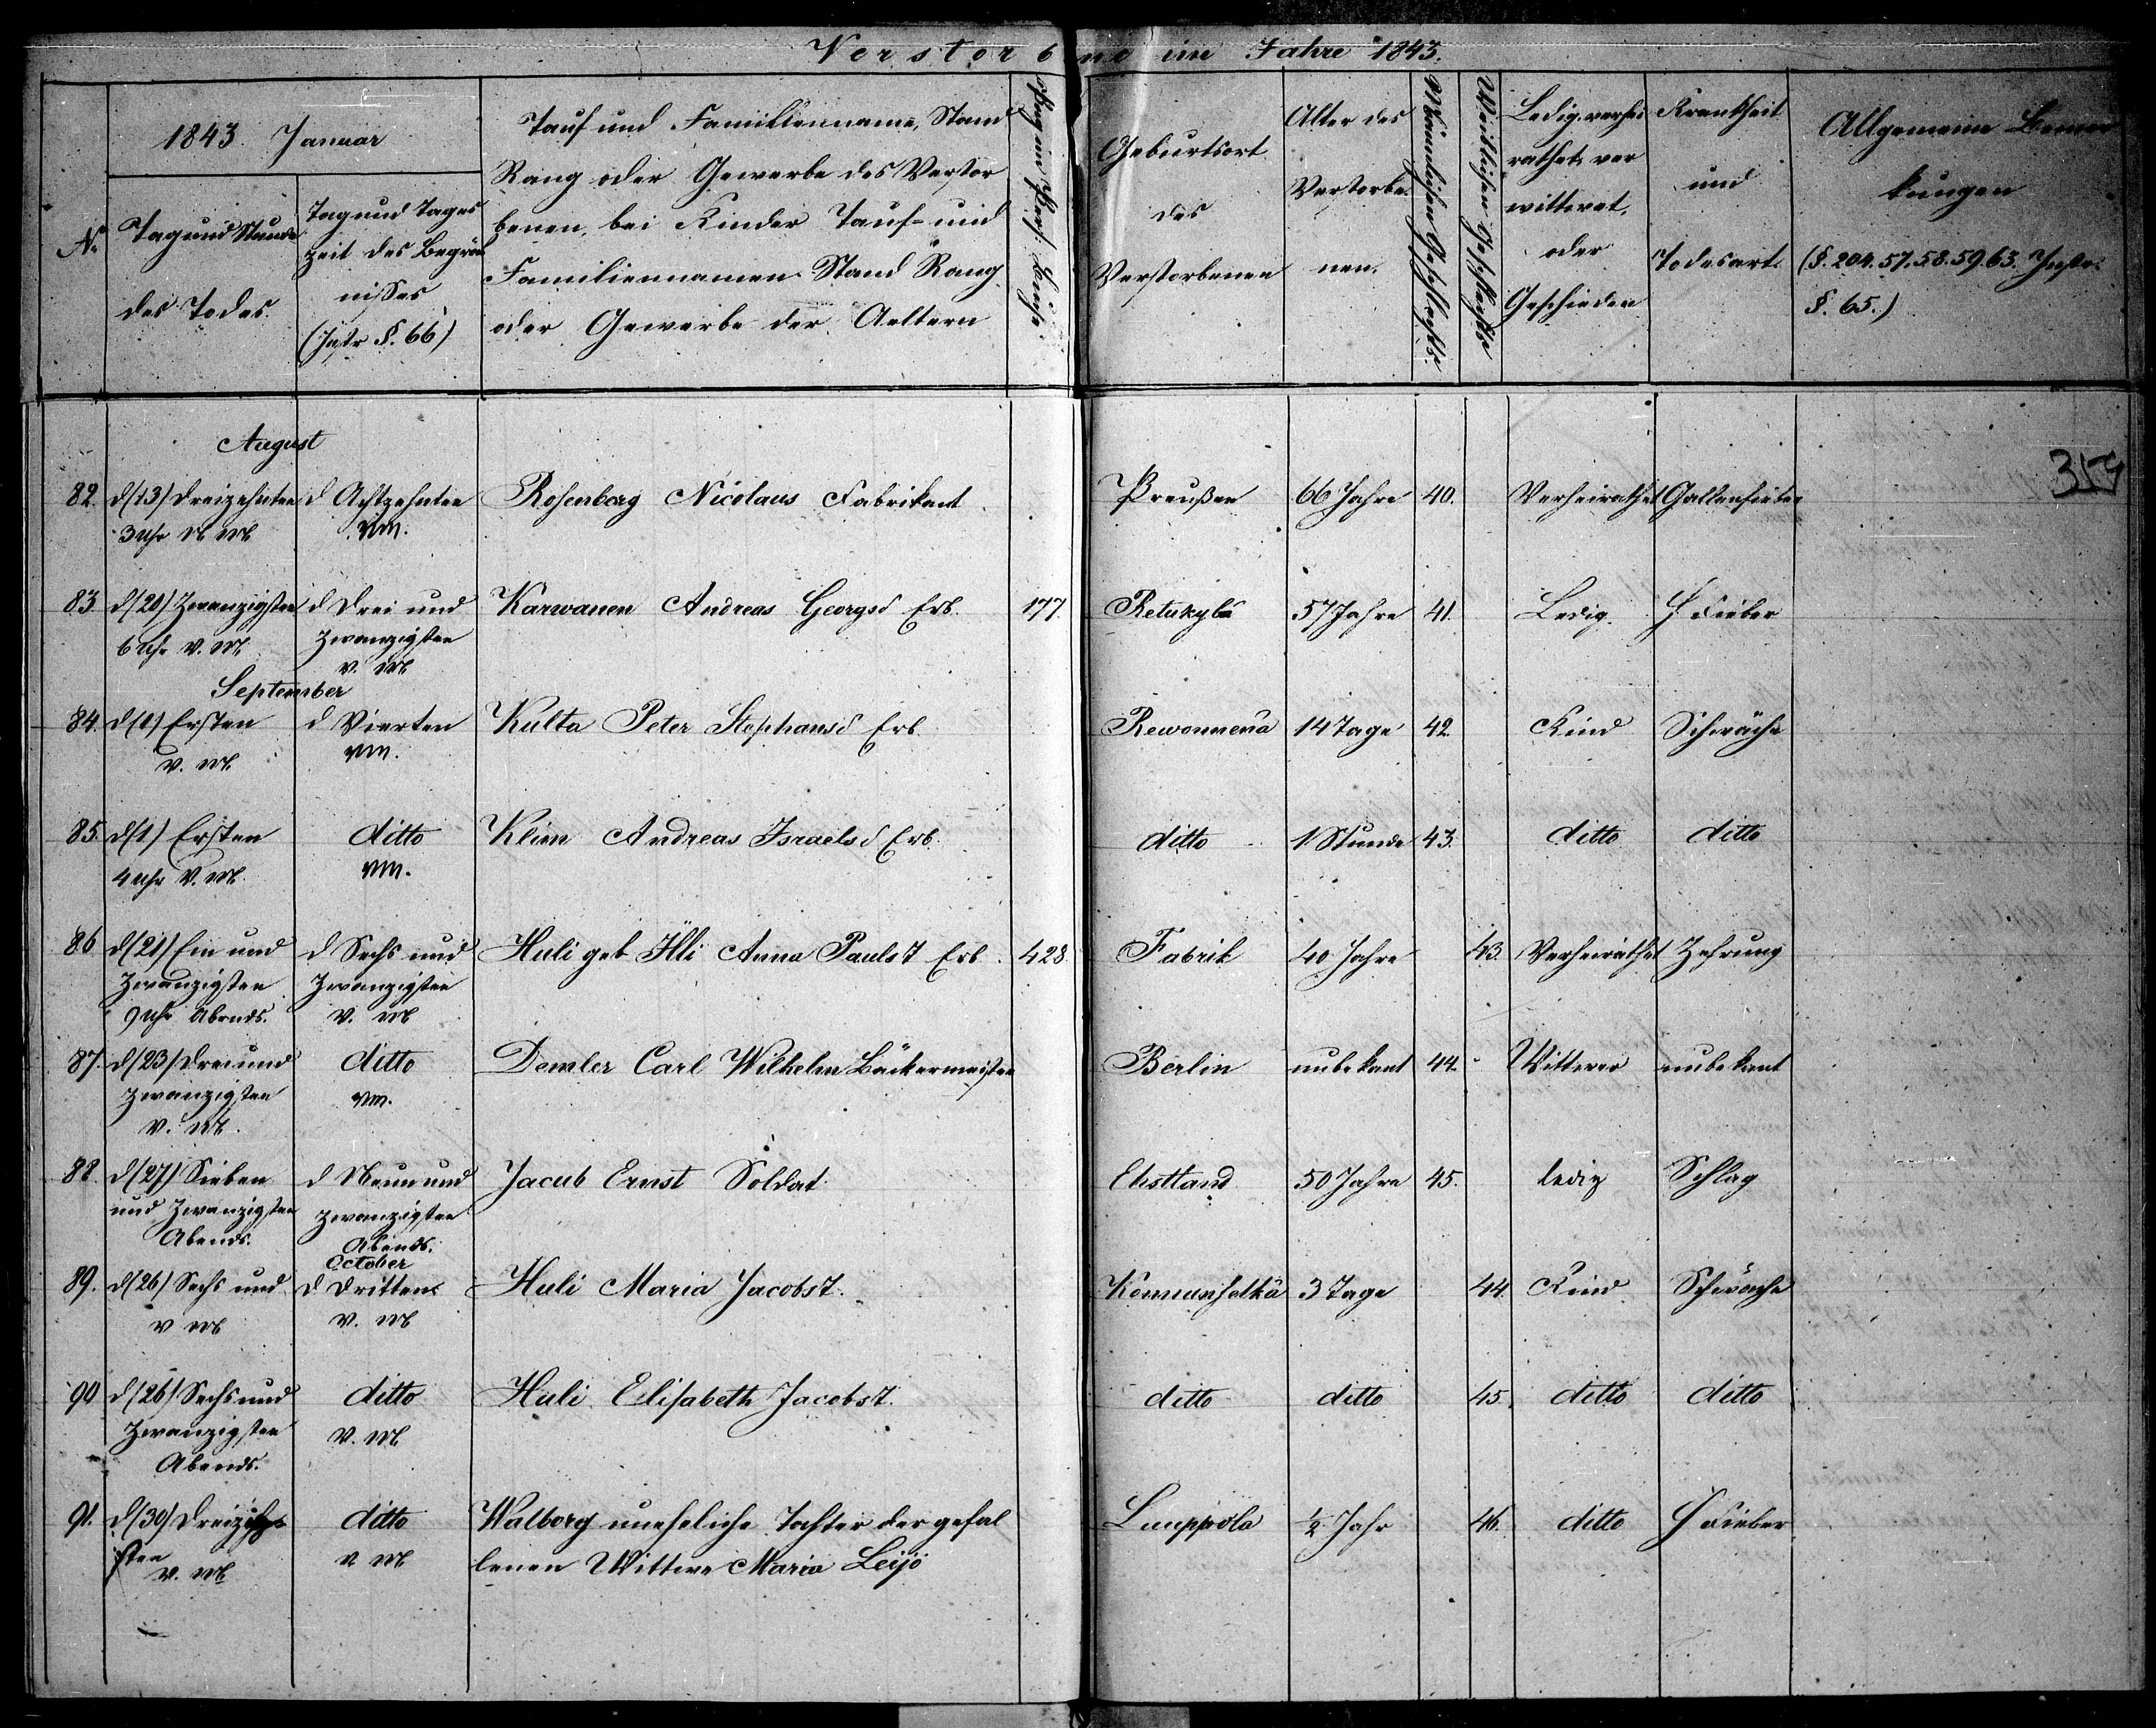 Verstorbne im Jahre 1843.
1843. Januar
No
Tag und Stunde
des Todes.
Tag und Tages
zeit des Begräb
nisses
(Instr §. 66)
Tauf und Familienname, Stand
Rang oder Gewerbe des Verstor
benen, bei Kinder Tauf- und
Familiennamen Stand Rang
oder Gewerbe der Aeltern
Geburtsort
des
Verstorbenen
Alter des
Verstorbe
nen.
Männlichen Geschlechts.
Weiblichen Geschlechts
Ledig, verhei
rathet, ver
wittwet,
oder
Geschieden
Krankheit
und
Todesart.
Allgemeine Bemer
kungen
(§. 204. 57. 58. 59. 63. Instr.
§. 65.)
359
August
82. d (13) dreizehnten d Achtzehnten Rosenberg Nicolaus Fabrikant Preußen 66 Jahre 40. Verheirathet Gallenfieber
3 Uhr N M VM.
83 d (20) Zwanzigsten d Drei und Karwanen Andreas Georgsd Erb. 177. Retukylä 57 Jahre 41. Ledig. Fieber
6 Uhr V. M. zwanzigsten
V. M
September
84. d (1) Ersten d Vierten Kulta Peter Stephansd Erb Rewonnena 14 Tage 42 Kind Schwäche
V. M VM.
85. d (1) Ersten ditto Klim Andreas Israelsd Erb. ditto 1 Stunde 43. ditto ditto
4 Uhr V. M. VM.
86 d (21) Ein und d Sechs und Huli geb Illi Anna Paulst Erb. 428. Fabrik 40 Jahre 43. Verheirathet Zehrung
Zwanzigsten Zwanzigsten
9 Uhr Abends. V. M
87. d (23) Drei und ditto Demler Carl Wilhelm Bäckermeister Berlin unbekant 44. Wittwer unbekant
zwanzigsten VM.
V. M.
88. d (27) Sieben d Neun und Jacub Ernst Soldat Ehstland 50 Jahre 45. ledig Schlag
und Zwanzigsten zwanzigsten
Abends. Abends.
October
89. d (26) Sechs und d Dritten Huli Maria Jacobst. 3 Tage 44. Kind Schwäche
V M V. M
90 d (26) Sechs und ditto Huli Elisabeth Jacobst. ditto ditto 45. ditto ditto
Zwanzigsten V. M
Abends.
91. d (30) Dreizig ditto Walborg uneheliche Tochter der gefal Lumppola ½ Jahr 46. ditto Fieber
sten M lenen Wittwe Maria Leijö
V. M